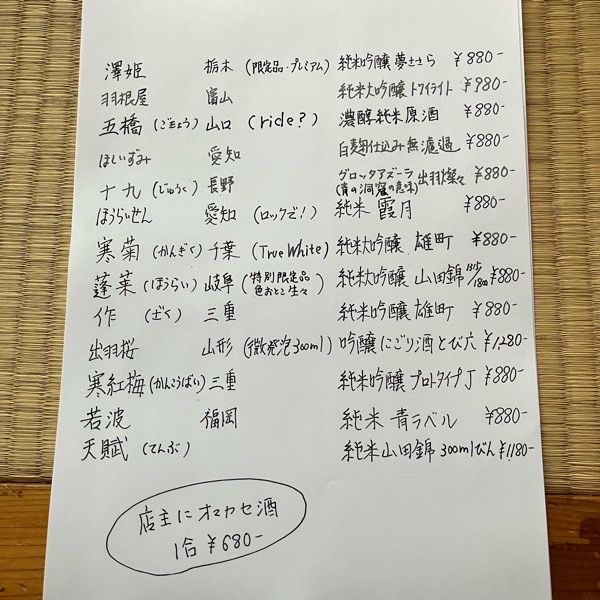 澤姫 栃木 (限定品・プレミアム) 純米吟醸 夢ささら ¥880-
羽根屋 富山 純米大吟醸 トワイライト ¥980-
五橋 (ごきょう) 山口 (ride?) 濃醇純米原酒 ¥880-
ほしいずみ 愛知 白麹仕込み無濾過 ¥880-
十九 (じゅうく) 長野 グロッタアズーラ (青の洞窟の意味) 出羽燦々 ¥880-
ほうらいせん 愛知 (ロックで!) 純米 霞月 ¥880-
寒菊 (かんぎく) 千葉 (True White) 純米大吟醸 雄町 ¥880-
蓬莱 (ほうらい) 岐阜 (特別限定品 色おとこ生々) 純米大吟醸 山田錦 1215/1800 ¥880-
作 (ざく) 三重 純米吟醸 雄町 ¥880-
出羽桜 山形 (微発泡300ml) 吟醸にごり酒とび六 ¥1,280-
寒紅梅 (かんこうばい) 三重 純米吟醸 プロトタイプJ ¥880-
若波 福岡 純米 青ラベル ¥880-
天賦 (てんぶ) 純米山田錦 300mlびん ¥1,180-
店主にオマカセ酒
1合 ¥680-